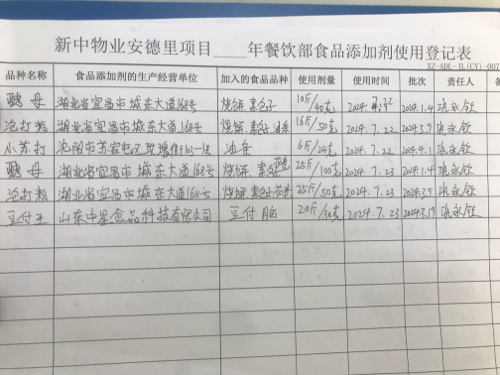 新中物业安德里项目____年餐饮部食品添加剂使用登记表
XZ-ADL-JL(CY)-007
品种名称 食品添加剂的生产经营单位 加入的食品品种 使用剂量 使用时间 批次 责任人
酵母 湖北省宜昌市城东大道168号 烧饼.素包子 10斤/40克 2024.7.22 2024.1.4 张永钦
泡打粉 湖北省宜昌市城东大道168号 烧饼.素包子 油条 16斤/50克 2024.7.22 2024.3.9 张永钦
小苏打 沈阳市苏家屯区 油条 6斤/24克 2024.7.22 2024.9.1 张永钦
酵母 湖北省宜昌市城东大道168号 烧饼.素包 花卷 25斤/100克 2024.7.23 2024.1.4 张永钦
泡打粉 湖北省宜昌市城东大道168号 烧饼.素包子花卷 25斤/50克 2024.7.23 2024.3.9 张永钦
豆付王 山东中星食品科技有限公司 豆付脑 20斤/30克 2024.7.23 2024.3.19 张永钦